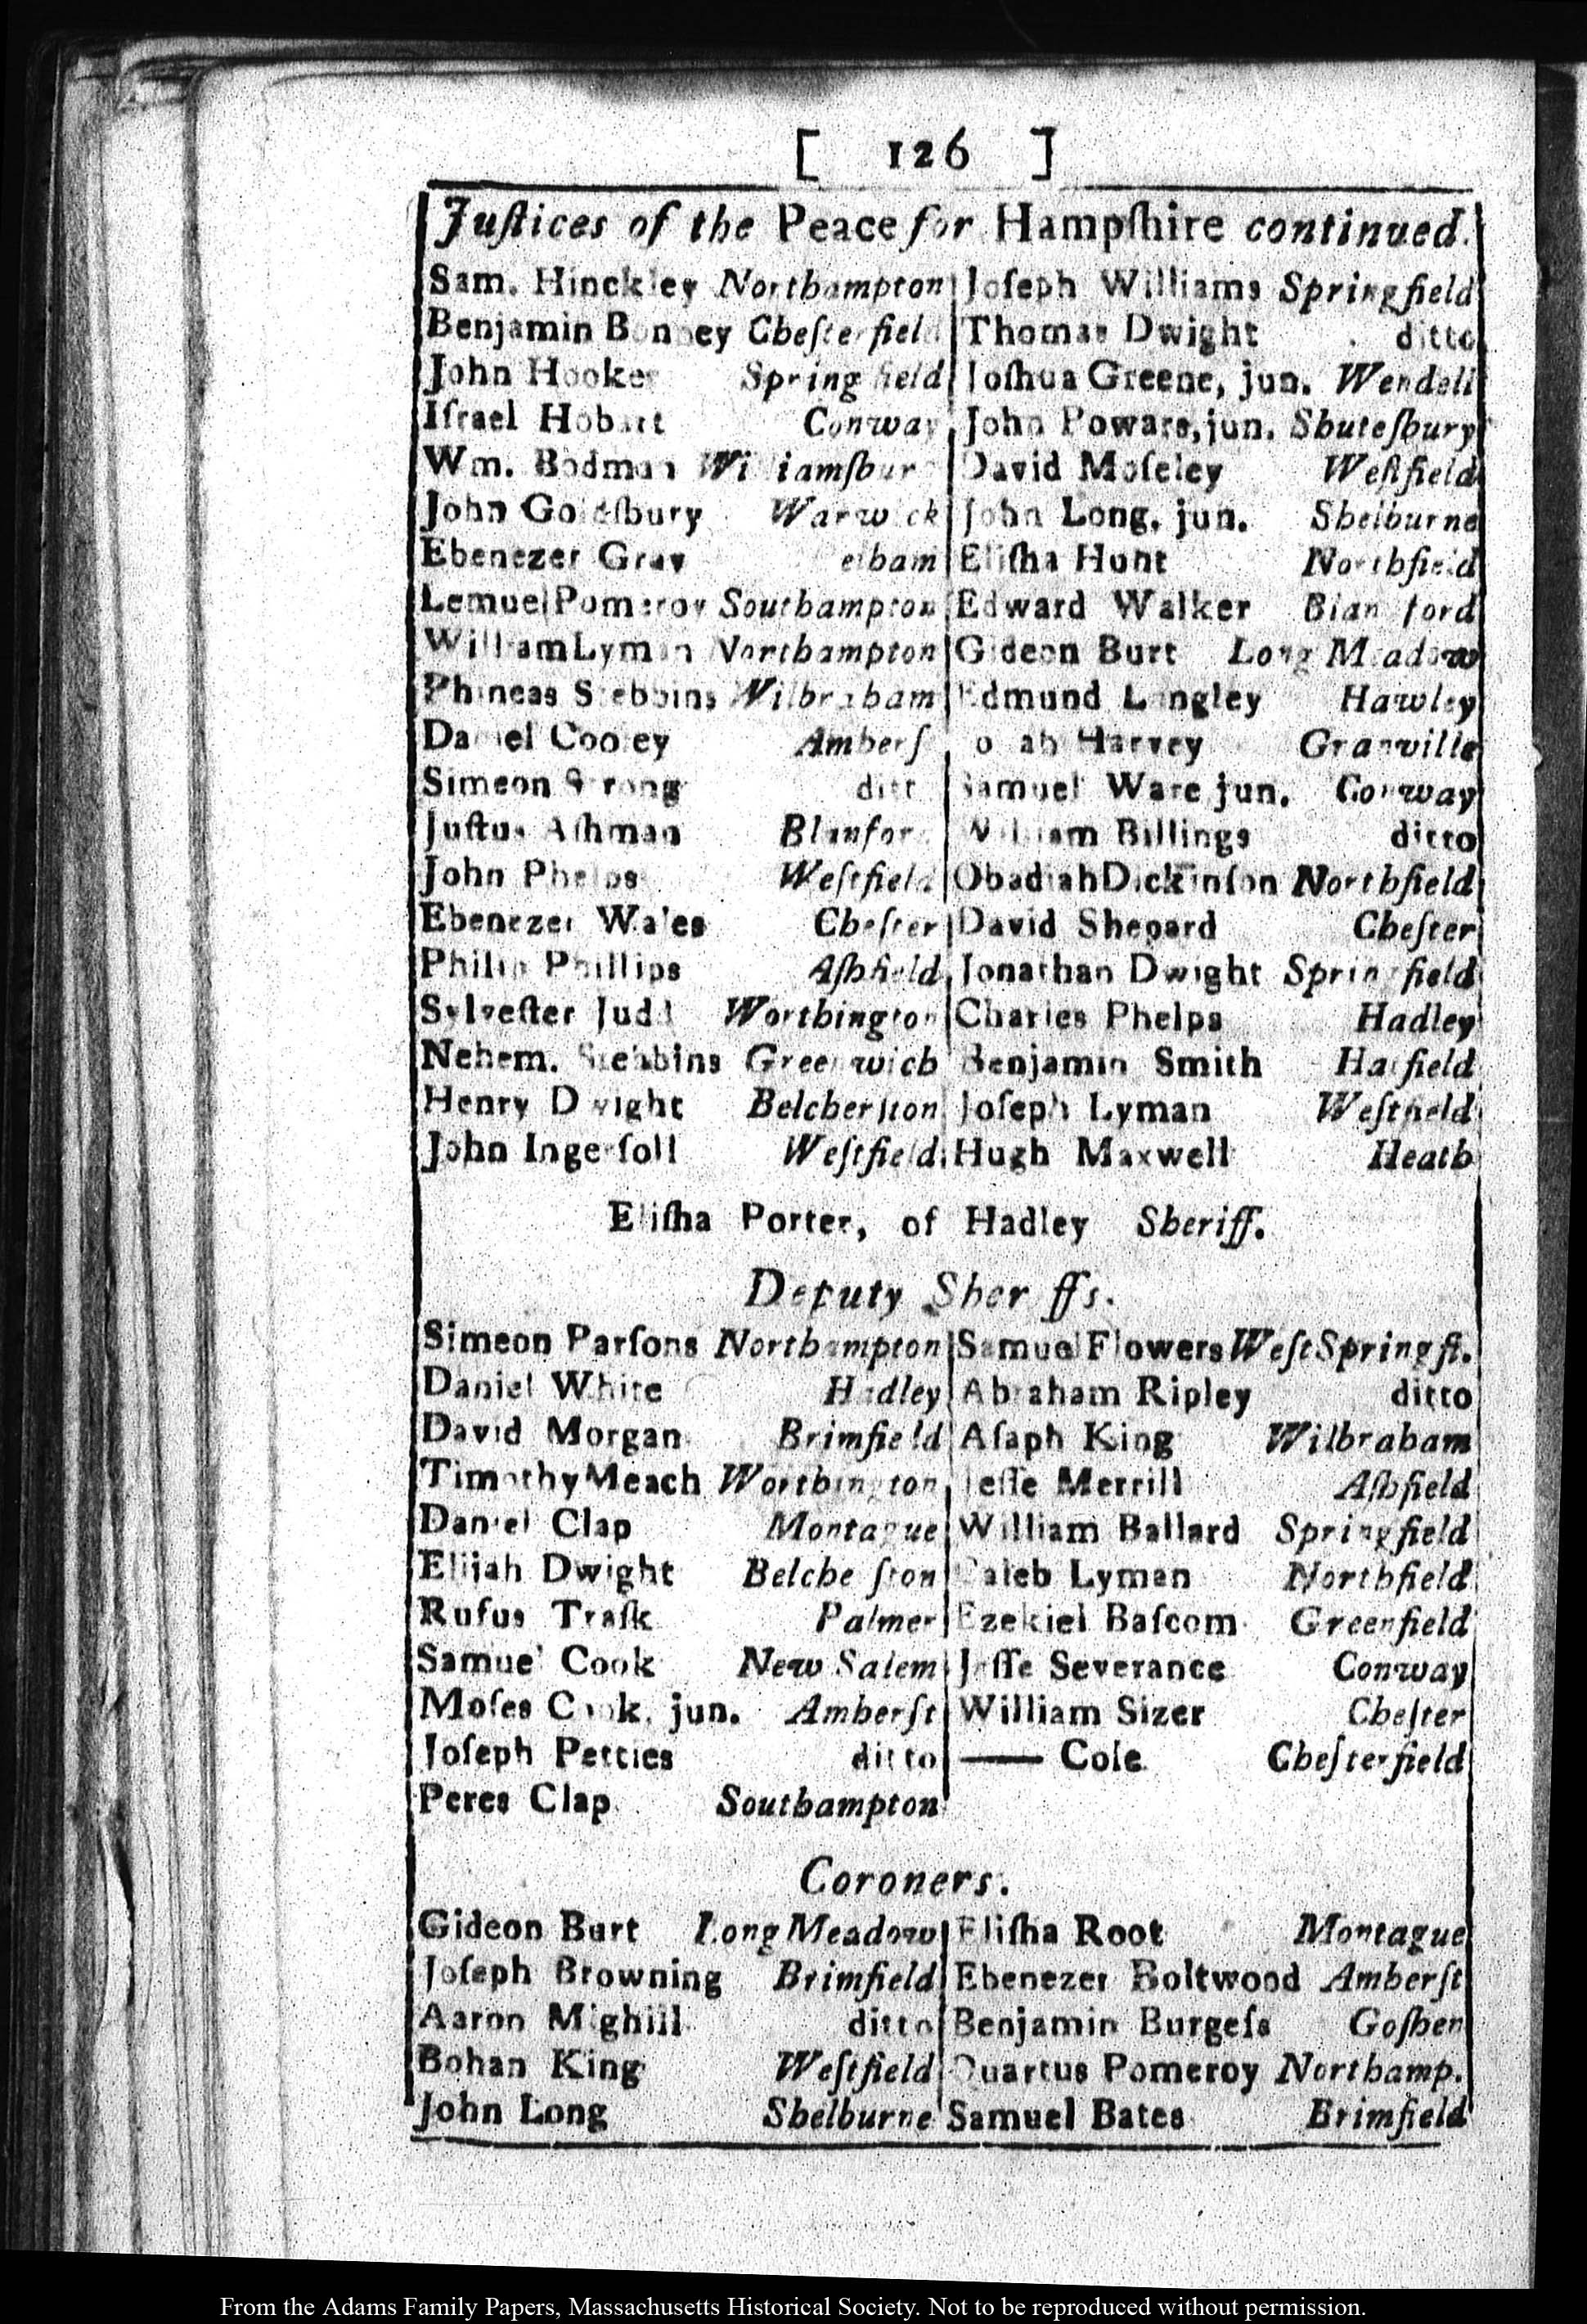 [ 126 ]
Juſtices of the Peace for Hampſhire continued.
Sam. Hinckley Northampton
Benjamin Bonney Cheſterfield
John Hooker Springfield
Iſrael Hobart Conway
Wm. Bodman Williamſburg
John Goldſbury Warwick
Ebenezer Gray
LemuelPomeroy Southampton
WilliamLyman Northampton
Phineas Stebbins Wilbraham
Daniel Cooley Amherſt
Simeon Strong ditto
Juſtus Aſhman Blanford
John Phelps Weſtfield
Ebenezer Wales Cheſter
Philip Phillips Aſhfield
Sylveſter Judd Worthington
Nehem. Stebbins Greenwich
Henry Dwight Belcherſton
John Ingerſoll Weſtfield
Joſeph Williams Springfield
Thomas Dwight ditto
Joſhua Greene, jun. Wendell
John Powars, jun. Shuteſbury
David Moſeley Weſtfield
John Long, jun. Shelburne
Eliſha Hunt Northfield
Edward Walker Blandford
Gideon Burt Long Meadow
Edmund Longley Hawley
Harvey Granville
Samuel Ware jun. Conway
William Billings ditto
ObadiahDickinſon Northfield
David Shepard Cheſter
Jonathan Dwight Springfield
Charles Phelps Hadley
Benjamin Smith Hatfield
Joſeph Lyman Weſtfield
Hugh Maxwell Heath
Eliſha Porter, of Hadley Sheriff.
Deputy Sheriffs.
Simeon Parſons Northampton
Daniel White Hadley
David Morgan Brimfield
TimothyMeach Worthington
Daniel Clap Montague
Elijah Dwight Belcherſton
Rufus Traſk Palmer
Samuel Cook New Salem
Moſes Cook, jun. Amherſt
Joſeph Petties ditto
Peres Clap Southampton
Samuel Flowers WeſtSpringfi.
Abraham Ripley ditto
Aſaph King Wilbraham
Jeſſe Merrill Aſhfield
William Ballard Springfield
Caleb Lyman Northfield
Ezekiel Baſcom Greenfield
Jeſſe Severance Conway
William Sizer Cheſter
—— Cole Cheſterfield
Coroners.
Gideon Burt Long Meadow
Joſeph Browning Brimfield
Aaron Mighill ditto
Bohan King Weſtfield
John Long Shelburne
Eliſha Root Montague
Ebenezer Boltwood Amherſt
Benjamin Burgeſs Goſhen
Quartus Pomeroy Northamp.
Samuel Bates Brimfield
From the Adams Family Papers, Massachusetts Historical Society. Not to be reproduced without permission.